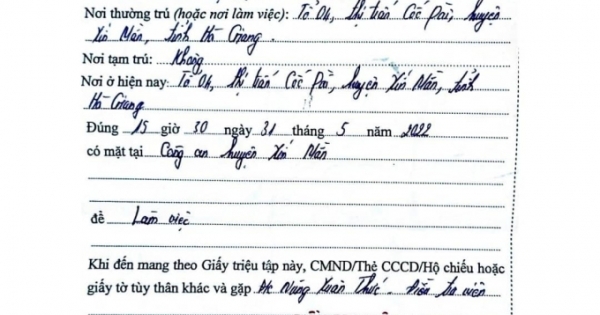 Nơi thường trú (hoặc nơi làm việc): Tổ 04, thị trấn Cốc Pài, huyện
Xín Mần, tỉnh Hà Giang.
Nơi tạm trú: Không
Nơi ở hiện nay: Tổ 04, thị trấn Cốc Pài, huyện Xín Mần, tỉnh
Hà Giang
Đúng 15 giờ 30 ngày 31 tháng 5 năm 2022
có mặt tại Công an huyện Xín Mần
để Làm việc
Khi đến mang theo Giấy triệu tập này, CMND/Thẻ CCCD/Hộ chiếu hoặc
giấy tờ tùy thân khác và gặp Đ/c Nùng Xuân Thức. Điều tra viên